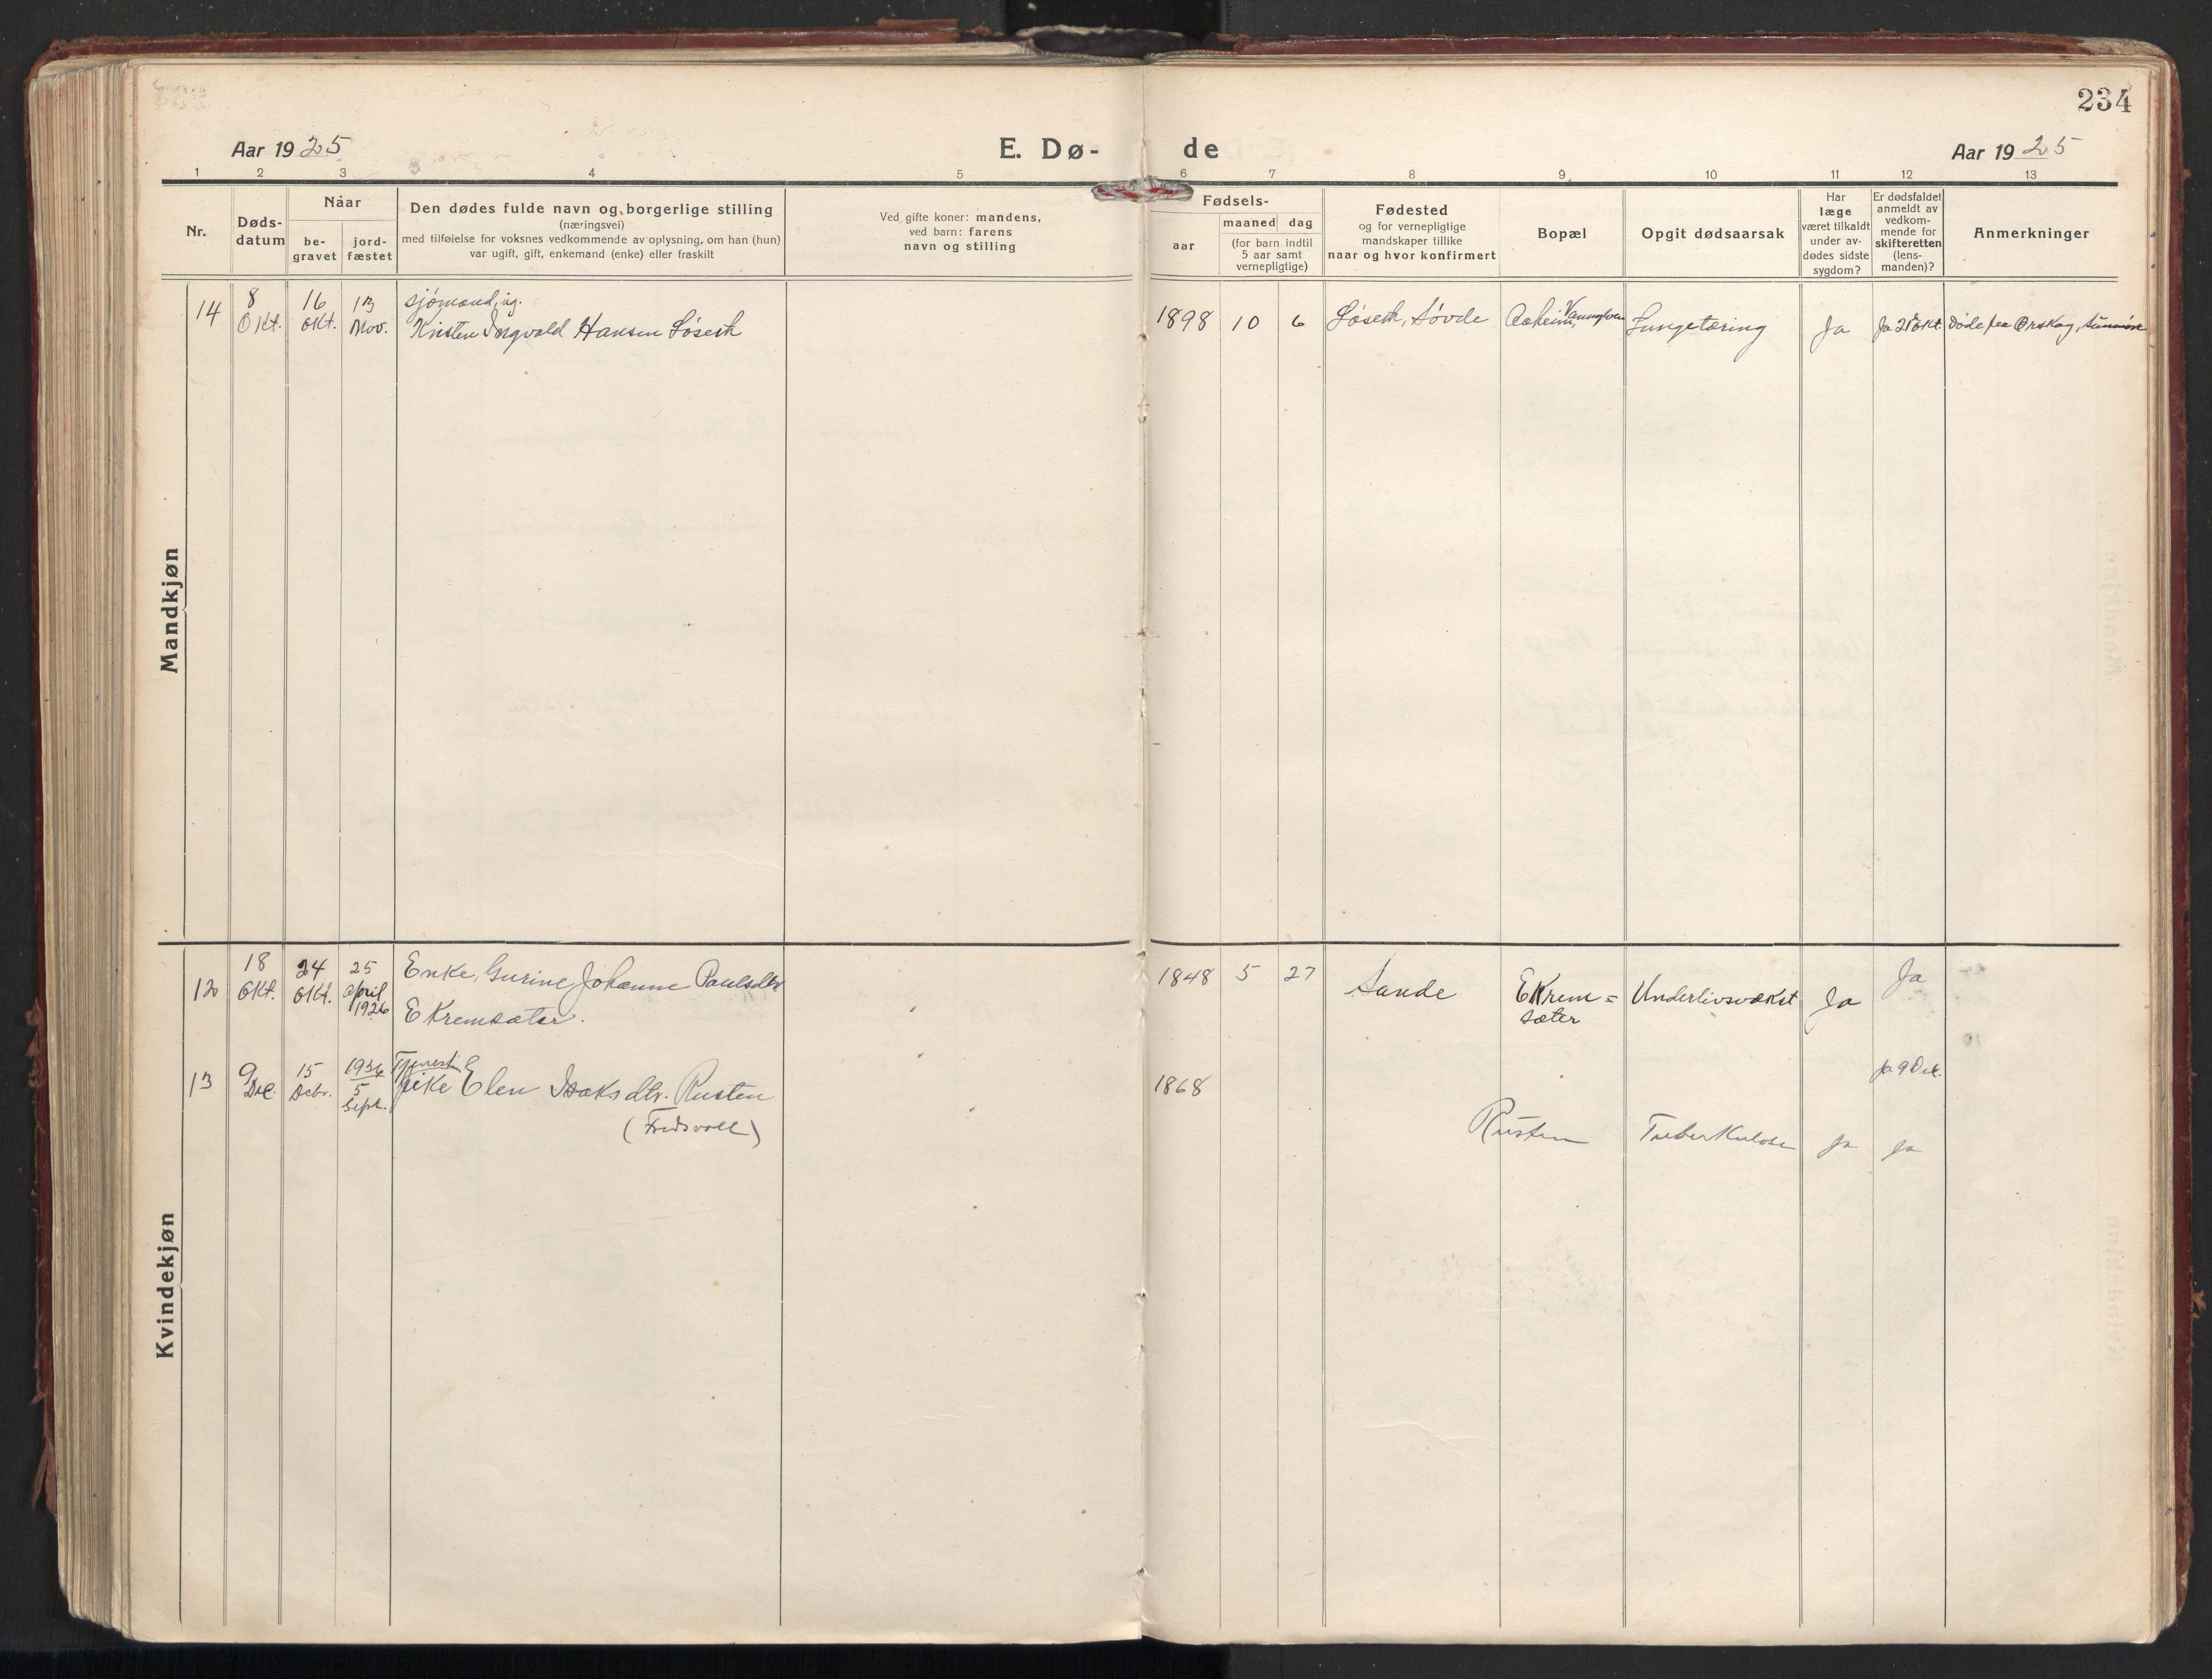 234
Aar 1925
E. Dø-
de
Aar 1925
1 2 3 4 5 6 7 8 9 10 11 12 13
Nr.
Døds-
datum
Naar
be-
gravet
jord-
fæstet
Den dødes fulde navn og borgerlige stilling
(næringsvei)
med tilføielse for voksnes vedkommende av oplysning, om han (hun)
var ugift, gift, enkemand (enke) eller fraskilt
Ved gifte koner: mandens,
ved barn: farens
navn og stilling
Fødsels-
aar
maaned dag
(for barn indtil
5 aar samt
vernepligtige)
Fødested
og for vernepligtige
mandskaper tillike
naar og hvor konfirmert
Bopæl
Opgit dødsaarsak
Har
læge
været tilkaldt
under av-
dødes sidste
sygdom?
Er dødsfaldet
anmeldt av
vedkom-
mende for
skifteretten
(lens-
manden)?
Anmerkninger
Mandkjøn
14
8
Okt.
16
Okt.
13
Nov.
Sjømand, ug.
Kristen Ingvald Hansen Løseth
1898 10 6
Løseth, Søvde
Aaheim, Vannylven
Lungetæring
Ja
Ja 21 Okt.
Døde paa Ørskog, Sunnmøre
Kvindekjøn
12
18
Okt.
24
Okt.
25
April
1926
Enke, Gurine Johanne Paulsdtr
Ekremsæter.
1848 5 27
Sande
Ekrem=
sæter
Underlivsvækst
Ja
Ja
13
9
Dec.
15
Decbr.
1926
5
Sept.
Tjenest
pike Elen Isaksdtr. Rusten
(Fredsvoll)
1868
Rusten
Tuberkulose
Ja
Ja 9 Dec.
Ja